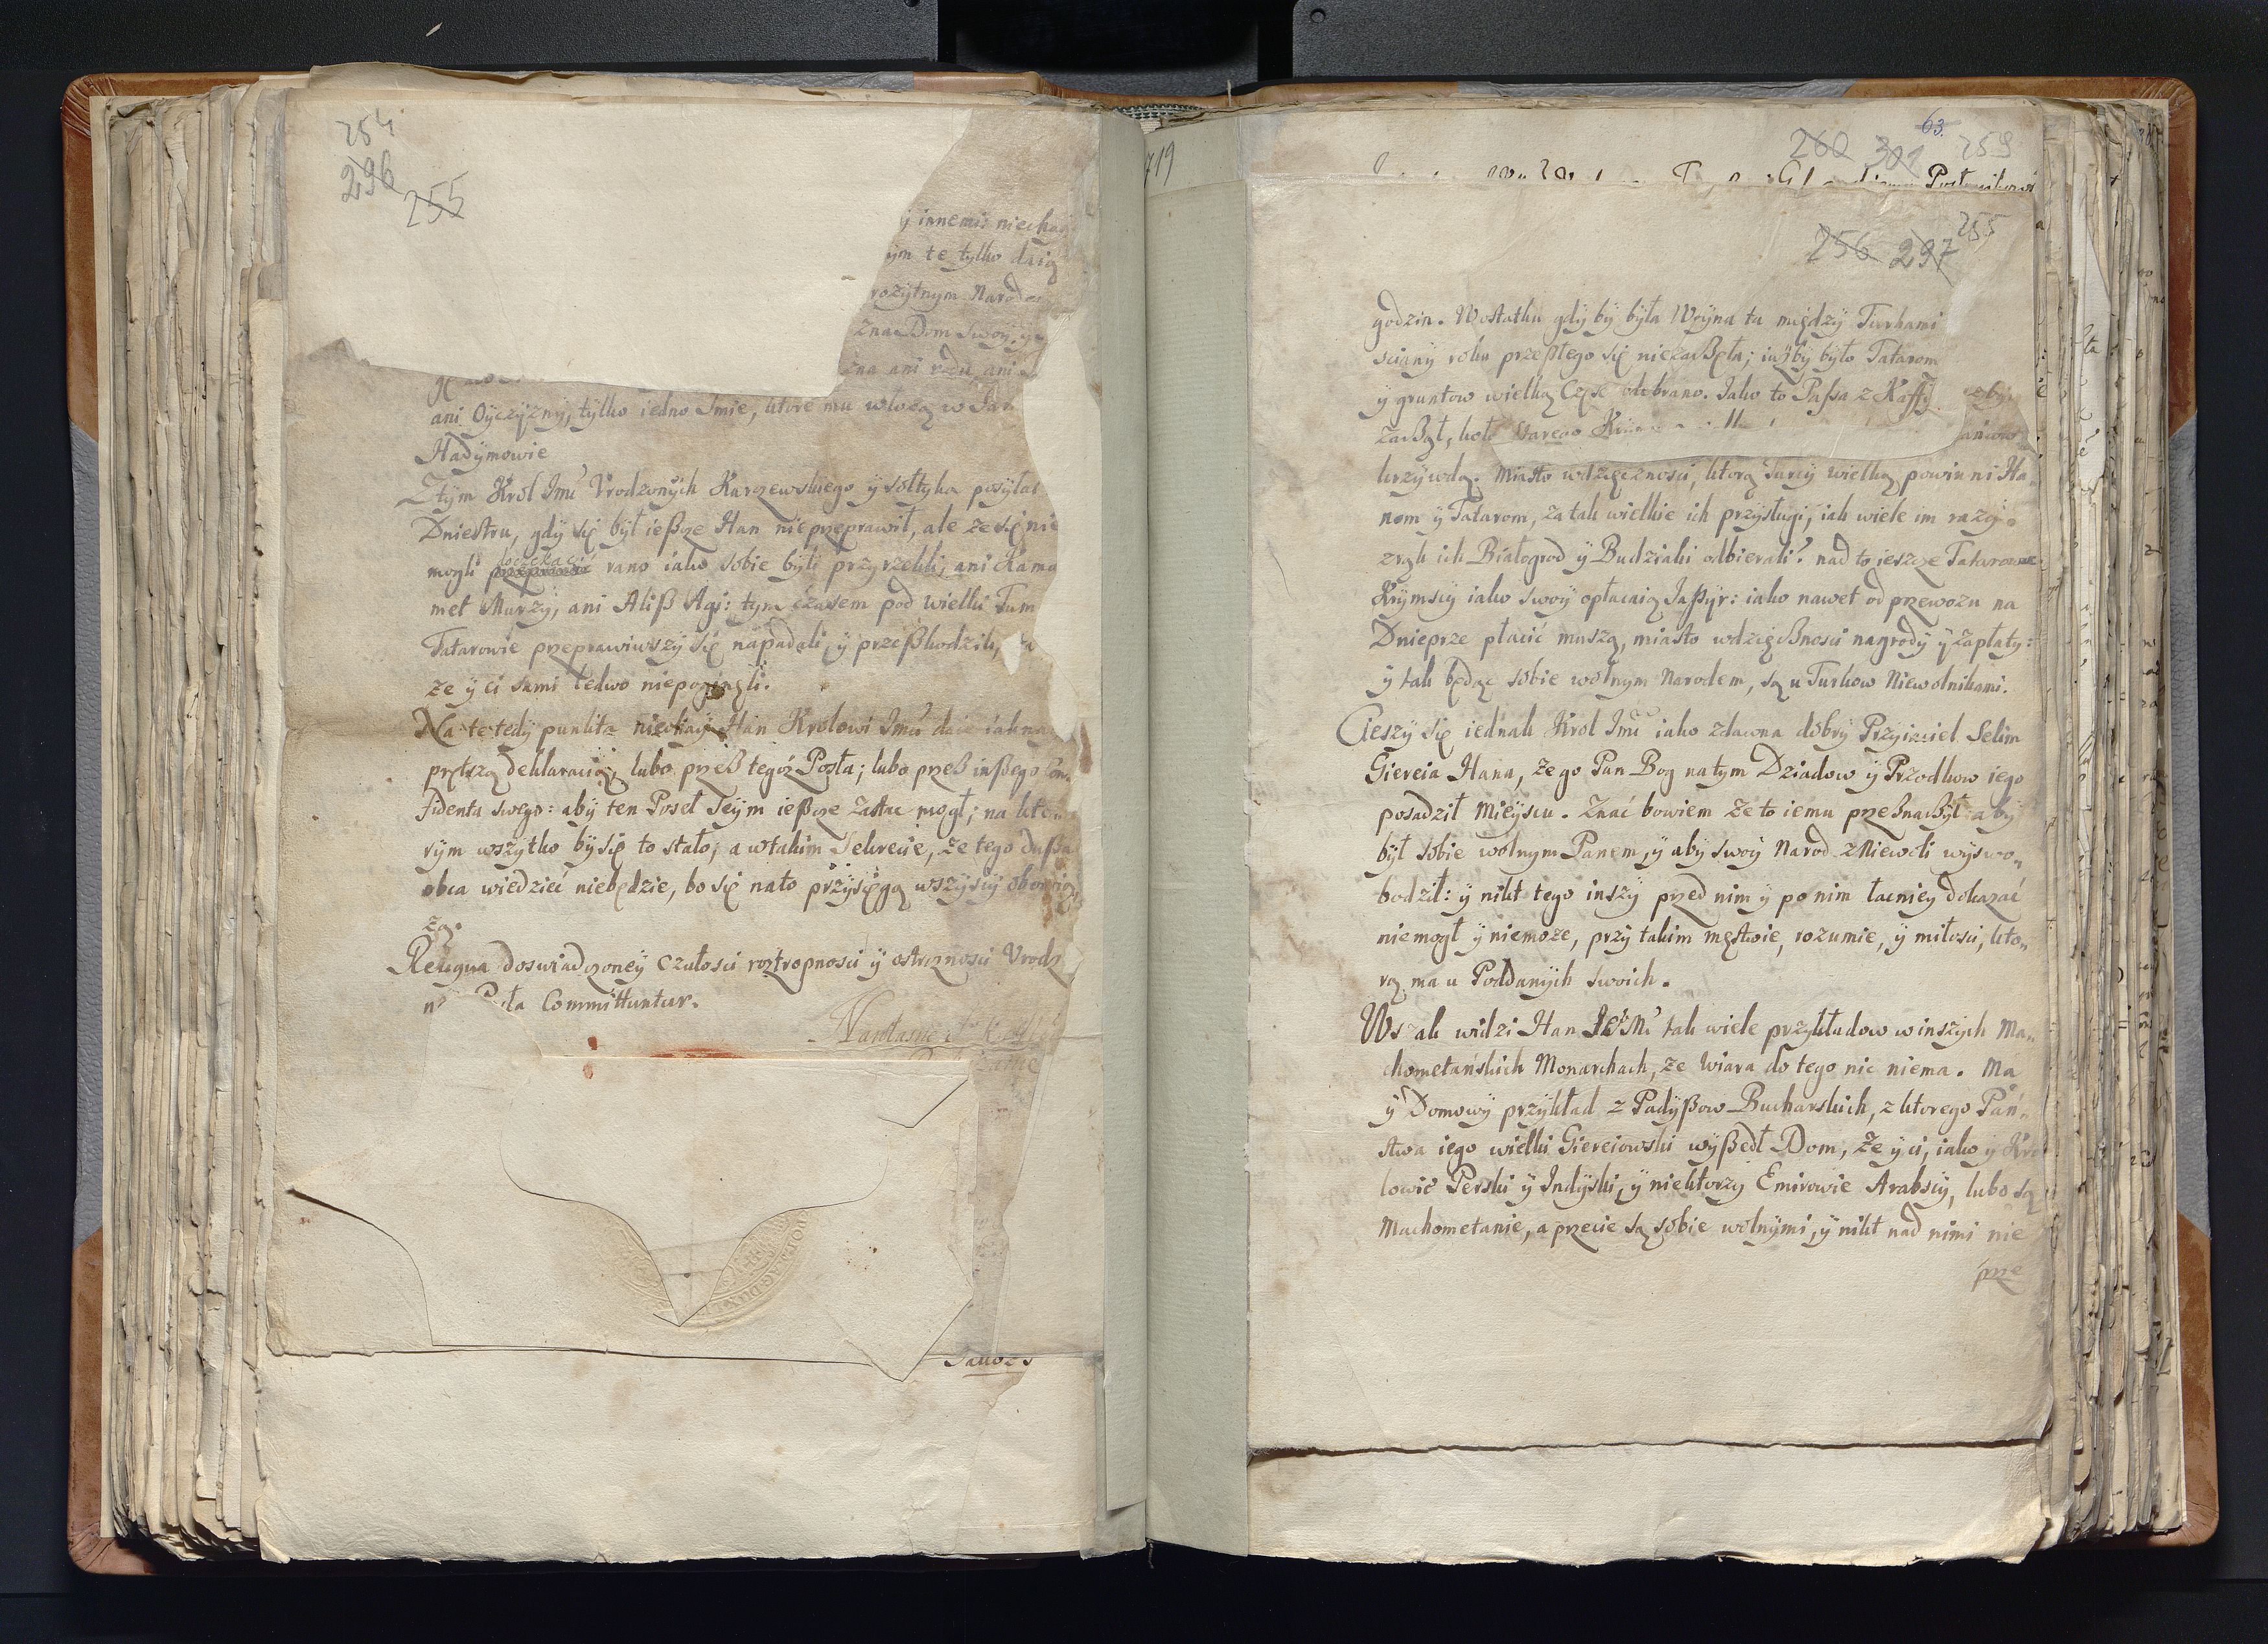 254
296
255
ÿ innemi niechaÿ
ÿm te tylko daią
rozÿtnym Narodo
zna Dom swoÿ, ÿ
zna ani rodu ani
ani Oÿczÿznÿ, tÿlko iedno Imie, ktore mu włożą w
Hadÿmowie
Ztÿm Krol Imć Vrodzonÿch Karczewskiego ÿ Sołtyka posÿłał
Dniestru, gdÿ się bÿł ießcze Han nieprzeprawił, ale że się nie
mogli doczekać rano iako sobie bÿli przÿrzekli, ani Kama
met Murzÿ, ani Aliß Agi: tÿm czasem pod wielki Tum
Tatarowie przeprawiwszÿ się napadali, ÿ przeßkodzili,
że ÿ ci sami ledwo niepoginęli.
Na te tedÿ punkta niechaÿ Han Krolowi Imći daie iak na
prętszą deklaracią, lubo przeß tegoż Posła; lubo przeß inßego Con
fidenta swego: abÿ ten Poseł Seÿm ießcze zastać mogł; na kto
rÿm wszÿtko bÿ się to stało; a w takim Sekrecie, że tego dußa
obca wiedzieć niebędzie, bo się na to przÿsięgą wszÿscÿ obowią
żą.
Reliqua doswiadczoneÿ czułosci roztropnosci ÿ ostroznosci Vrodz
Posła Committuntur.
719
63.
260 301 259
256 297 255
godzin. Wostatku gdÿ bÿ bÿła Woÿna ta międzÿ Turkami
scianÿ roku przeßłego się niezaczęła; iużbÿ bÿło Tatarom
ÿ gruntow wielką Częsc odebrano. Jako to Passa z Kaffÿ
zaczął, koło starego
krzÿwdą. Miasto wdzięcznosci, ktorą Turcÿ wielką powinni Ha„
nom ÿ Tatarom, za tak wielkie ich przÿsługi, iak wiele im razÿ
zrąk ich Białogrod ÿ Budziaki odbierali? nad to ieszcze Tatarowie
Krÿmscÿ iako swoÿ opłacaią Jaßÿr: iako nawet od przewozu na
Dnieprze płacić muszą, miasto wdzięcznosci nagrodÿ ÿ zapłatÿ:
ÿ tak będąc sobie wolnym Narodem, są u Turkow Niewolnikami.
Cieszÿ się iednak Krol Imć iako zdawna dobrÿ Przÿiaciel Selim
Giereia Hana, że go Pan Bog na tÿm Dziadow ÿ Przodkow iego
posadził mieÿscu. Znać bowiem że to iemu przeznaczÿł abÿ
bÿł sobie wolnÿm Panem, ÿ abÿ swoÿ Narod z Niewoli wÿswo„
bodził: ÿ nikt tego inszÿ przed nim ÿ po nim łacnieÿ dokazać
niemogł ÿ niemoże, przÿ takim męstwie, rozumie, ÿ miłosci, kto„
rą ma u Poddanÿch swoich.
Wszak widzi Han JeMć tak wiele przÿkładow w inszÿch Ma„
chometańskich Monarchach, że Wiara do tego nic niema. Ma
ÿ Domowÿ przÿkład z Padÿßow Bucharskich, z ktorego Pań„
stwa iego wielki Giereiowski wÿßedł Dom, że ÿ ci, iako ÿ Kro
lowie Perski ÿ Indÿski, ÿ niektorzÿ Emirowie Arabscÿ, lubo są
Machometanie, a przecie są sobie wolnÿmi, ÿ nikt nad nimi nie
prze